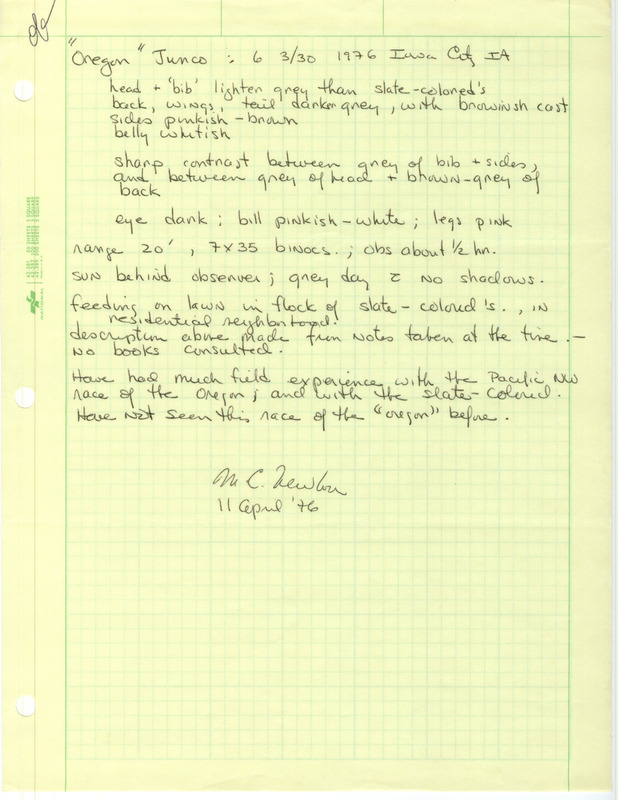 "Oregon" Junco : 6 3/30 1976 Iowa City IA
head + 'bib' lighter grey than slate-colored's
back, wings, tail darker grey, with brownish cast
sides pinkish-brown
belly whitish
sharp contrast between grey of bib + sides,
and between grey of head + brown-grey of
back
eye dark; bill pinkish-white; legs pink
range 20', 7x35 binocs.; obs about 1/2 hr.
sun behind observer; grey day c̄ no shadows.
feeding on lawn in flock of slate-colored's., in
residential neighborhood.
description above made from notes taken at the time. —
no books consulted.
Have had much field experience with the Pacific NW
race of the Oregon; and with the slate-colored.
Have not seen this race of the "oregon" before.
M C. Newlon
11 April '76